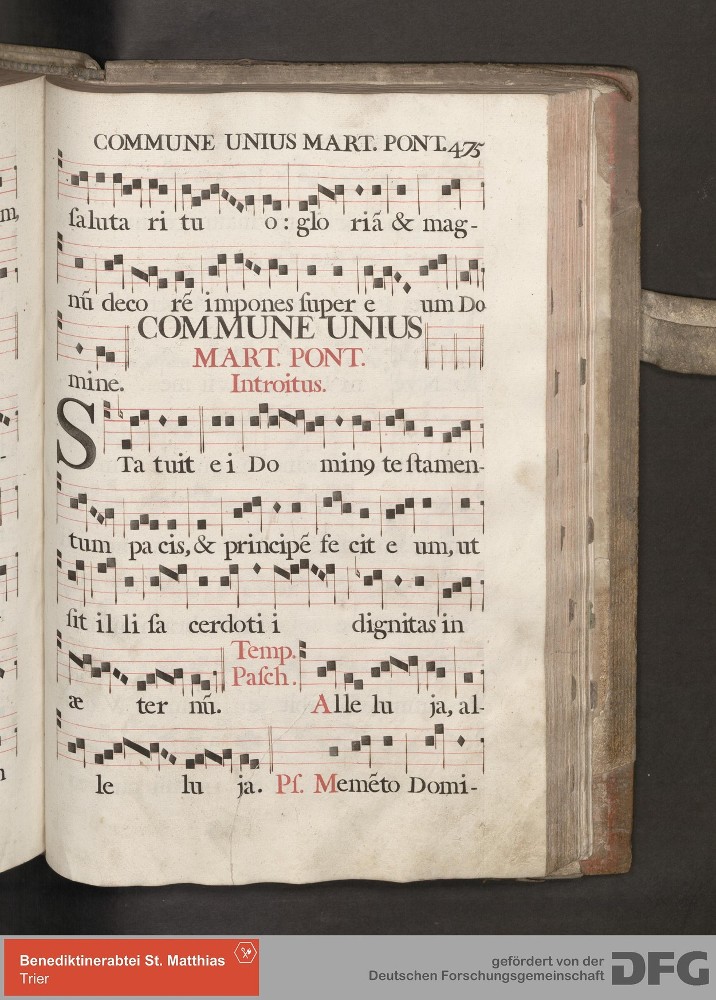 COMMUNE UNIUS MART. PONT. 475
ſaluta ri tu o: glo riã & mag-
nũ deco rẽ impones ſuper e um Do
mine.
COMMUNE UNIUS
MART. PONT.
Introitus.
STa tuit e i Do minꝰ te ſtamen-
tum pa cis, & principẽ fe cit e um, ut
ſit il li ſa cerdoti i dignitas in
æ ter nũ. Temp. Paſch. Alle lu ja, al-
le lu ja. Pſ. Memẽto Domi-
m,
-
Benediktinerabtei St. Matthias
Trier
gefördert von der
Deutschen Forschungsgemeinschaft
DFG